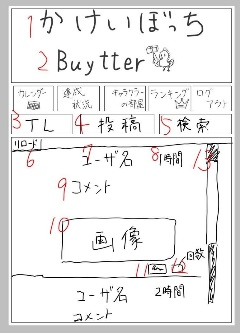 1 かけいぼっち
2 Buytter
カレンダー 達成状況 キャラクターの部屋 ランキング ログアウト
3 TL 4 投稿 5 検索
リロード
6 7 ユーザ名 8 1時間 13
9 コメント
10 画像
11 12 回数
ユーザ名 2時間
コメント